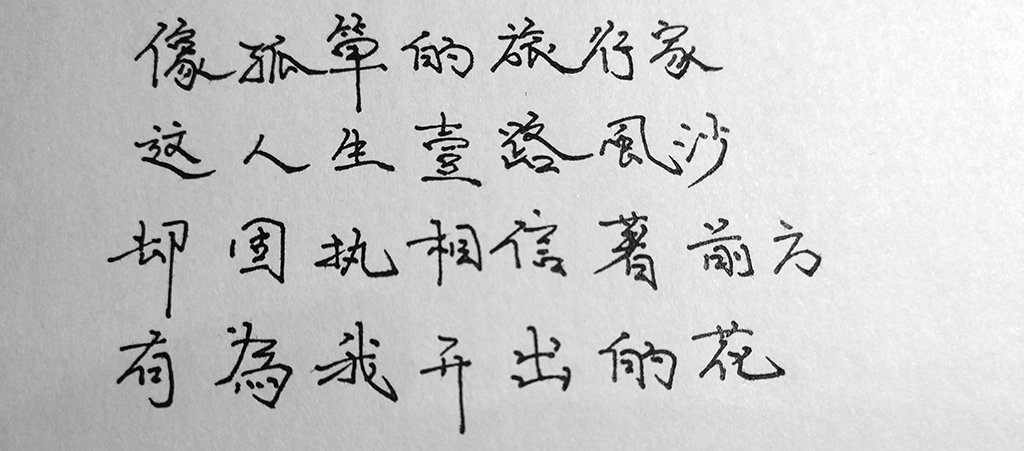 像孤單的旅行家
这人生壹路風沙
却固执相信著前方
有為我开出的花